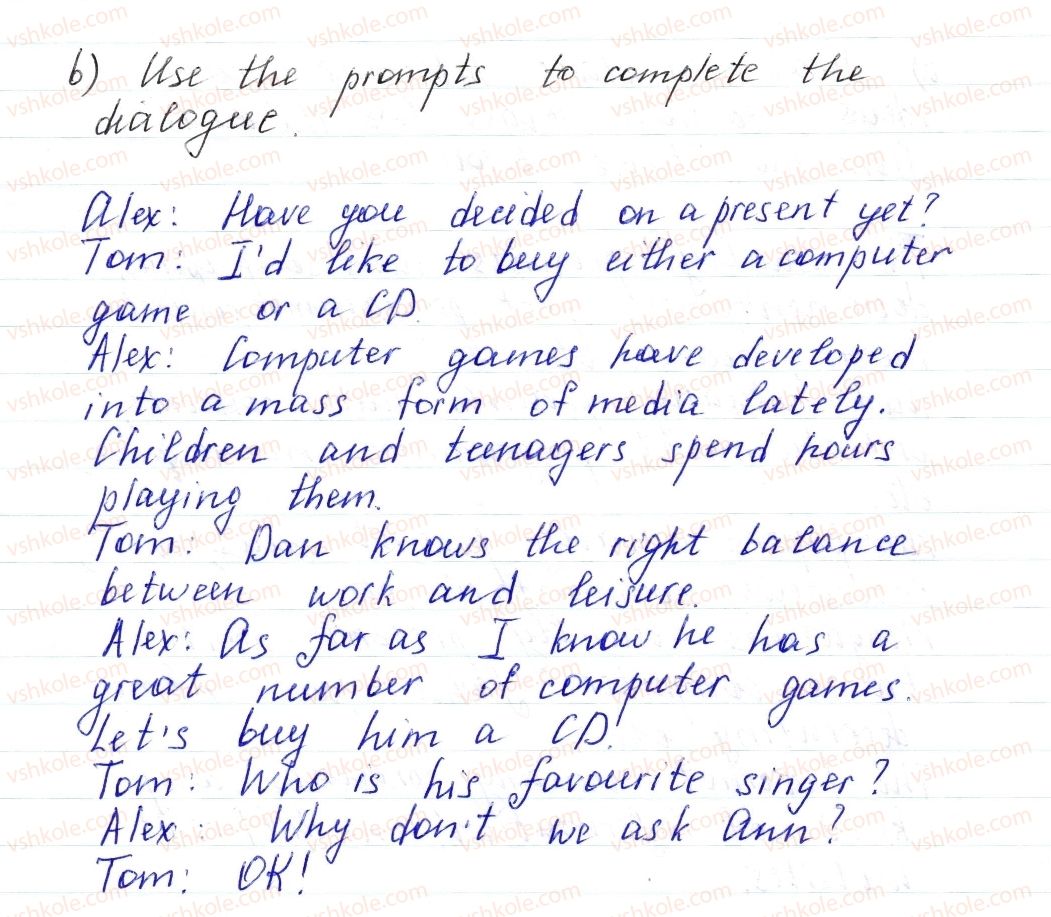 b) Use the prompts to complete the
dialogue.
Alex: Have you decided on a present yet?
Tom: I'd like to buy either a computer
game or a CD.
Alex: Computer games have developed
into a mass form of media lately.
Children and teenagers spend hours
playing them.
Tom: Dan knows the right balance
between work and leisure.
Alex: As far as I know he has a
great number of computer games.
Let's buy him a CD!
Tom: Who is his favourite singer?
Alex: Why don't we ask Ann?
Tom: OK!
vshkole.com